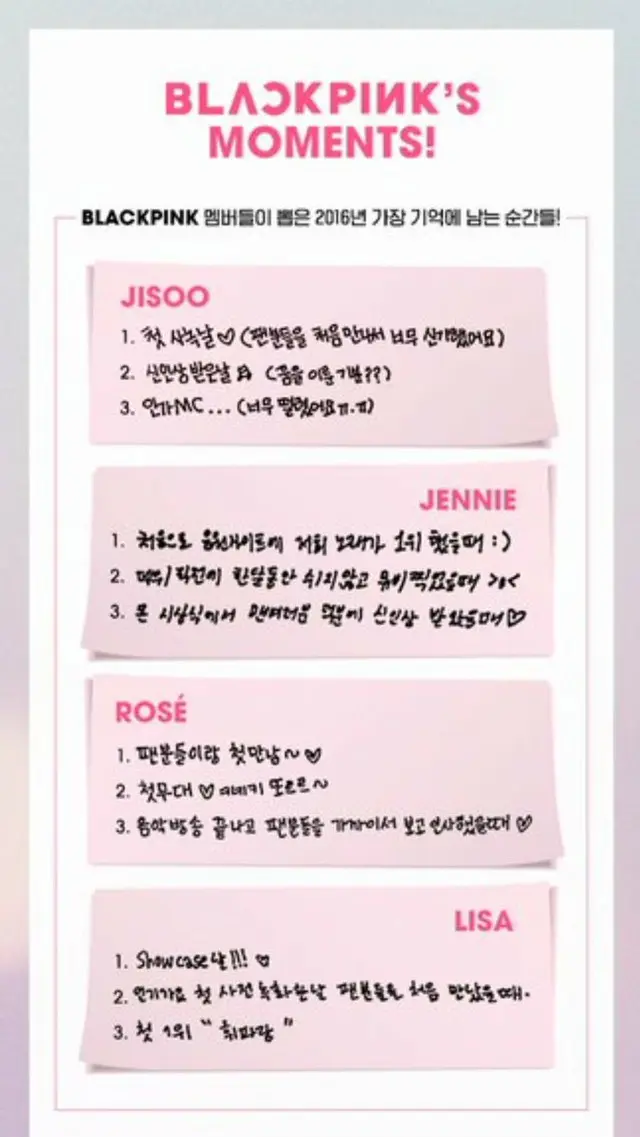 BLACKPINK'S
MOMENTS!
BLACKPINK 멤버들이 뽑은 2016년 가장 기억에 남는 순간들!
JISOO
1. 첫 사녹날♡ (팬분들을 처음만나서 너무 신기했어요)
2. 신인상받은날 (꿈을 이룬 기분??)
3. 인가MC... (너무 떨렸어요ㅠ.ㅠ)
JENNIE
1. 처음으로 음원사이트에 저희 노래가 1위 했을때 :)
2. 데뷔 직전에 한달동안 쉬지않고 뮤비찍었을때 >_<
3. 시상식에서 덕분에 신인상 받았을때♡
ROSÉ
1. 팬분들이랑 첫만남~♡
2. 첫무대♡ 또르르~
3. 음악방송 끝나고 팬분들을 가까이서 보고 인사했을때♡
LISA
1. Showcase날!!! ♡
2. 인기가요 첫 사전녹화한날 팬분들을 처음 만났을때.
3. 첫 1위 "휘파람"